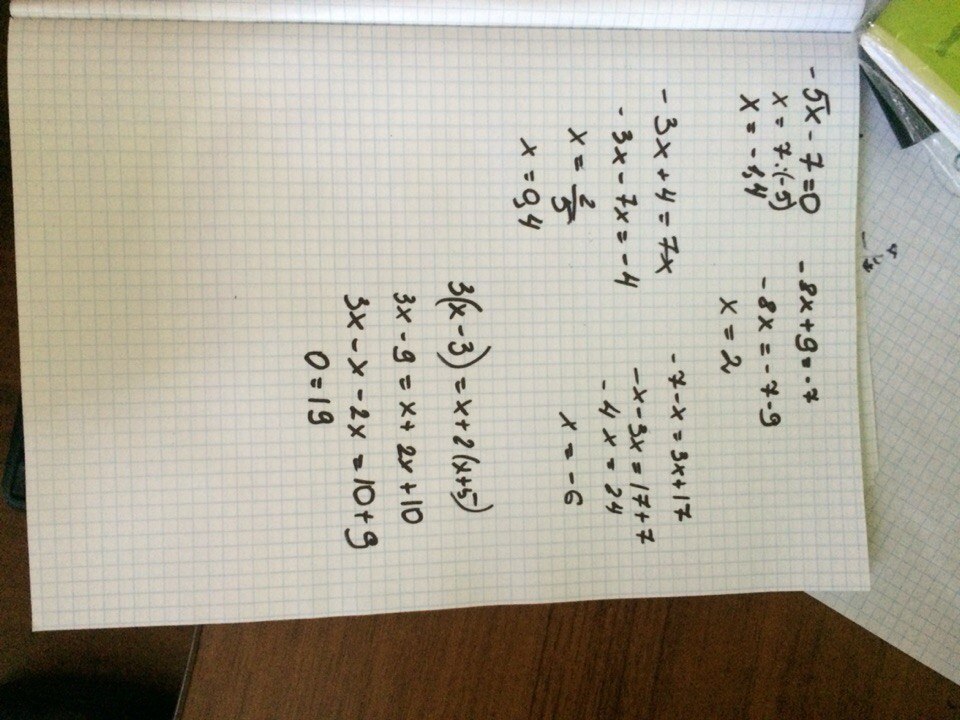 -5x-7=0
x=7·(-5)
x=-1,4
-8x+9=-7
-8x=-7-9
x=2
-3x+4=7x
-3x-7x=-4
x=2/5
x=0,4
-7-x=3x+17
-x-3x=17+7
-4x=24
x=-6
3(x-3)=x+2(x+5)
3x-9=x+2x+10
3x-x-2x=10+9
0=19